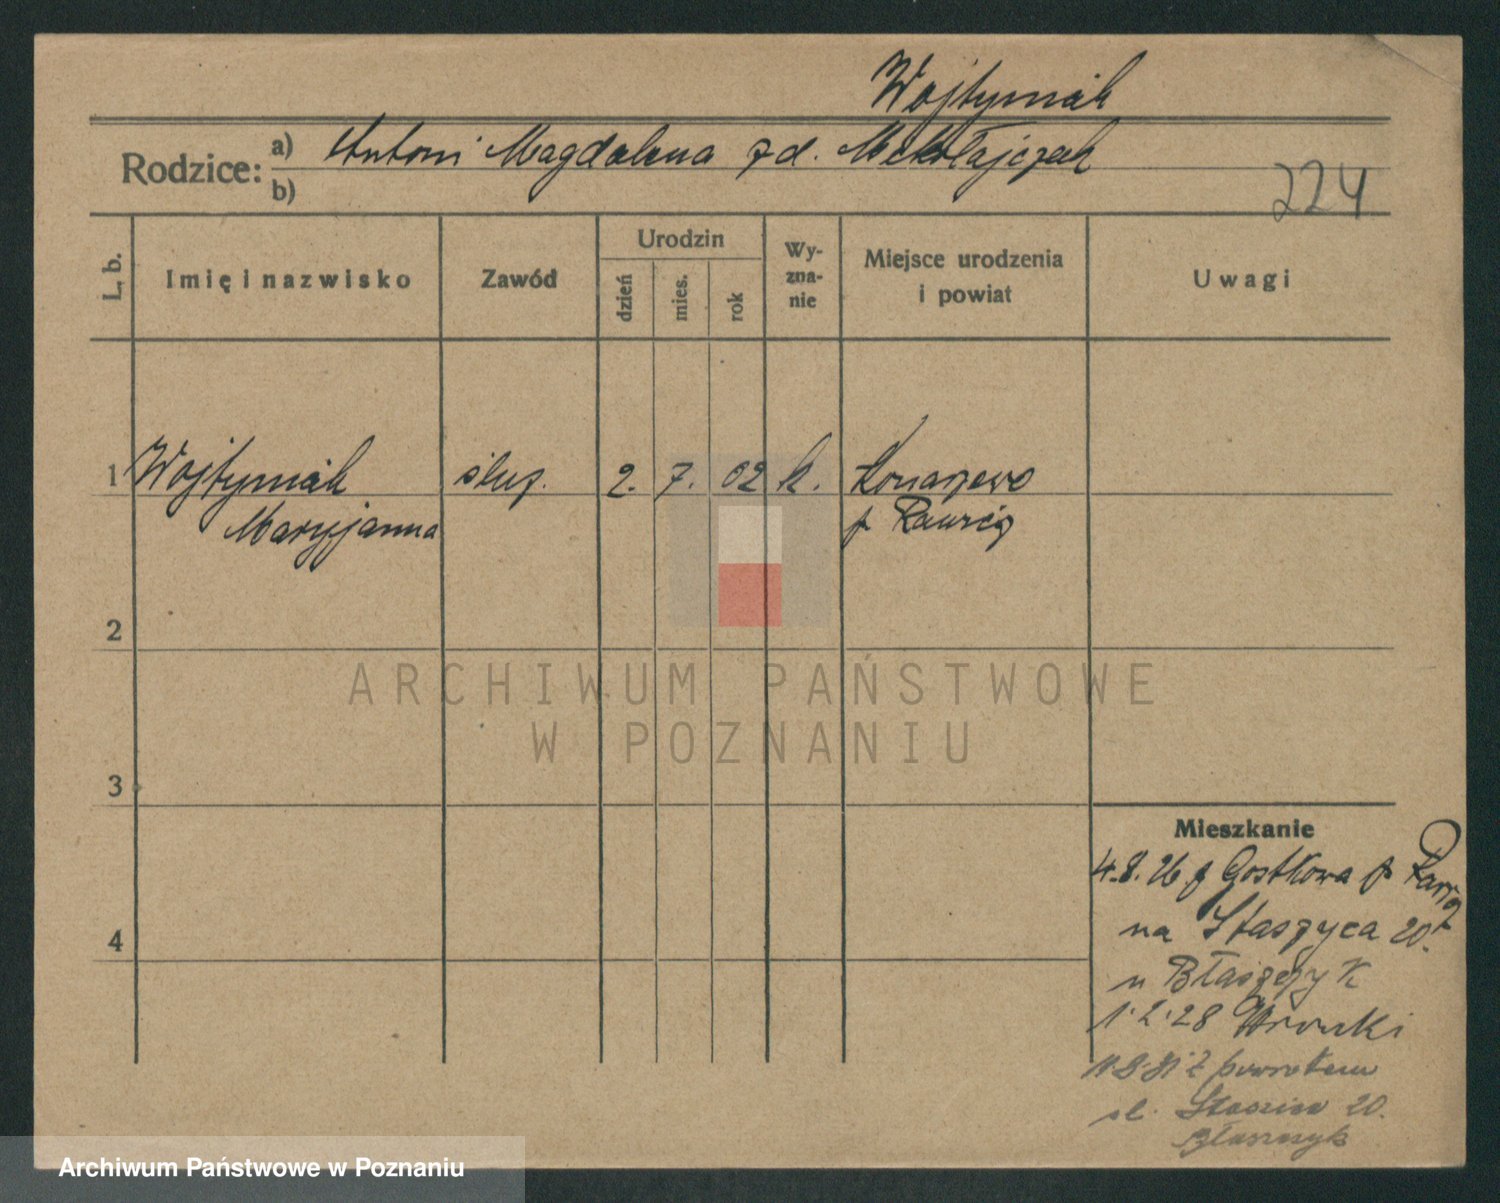 Wojtyniak
Rodzice: a) Antoni Magdalena z d. Mikołajczak
b)
224
L. b.
Imię i nazwisko
Zawód
Urodzin
dzień
mies.
rok
Wy-
zna-
nie
Miejsce urodzenia
i powiat
Uwagi
1 Wojtyniak służ. 2. 7. 02 k. Konarzewo
Maryjanna p Rawicz
2
ARCHIWUM PAŃSTWOWE
W POZNANIU
3
Mieszkanie
4.8.26 z Gostkowa p Rawicz
na Staszyca 20.
u Błaszczyk
4
1.2.28 Wronki
z powrotem
ul. Staszica 20.
Błaszczyk
Archiwum Państwowe w Poznaniu